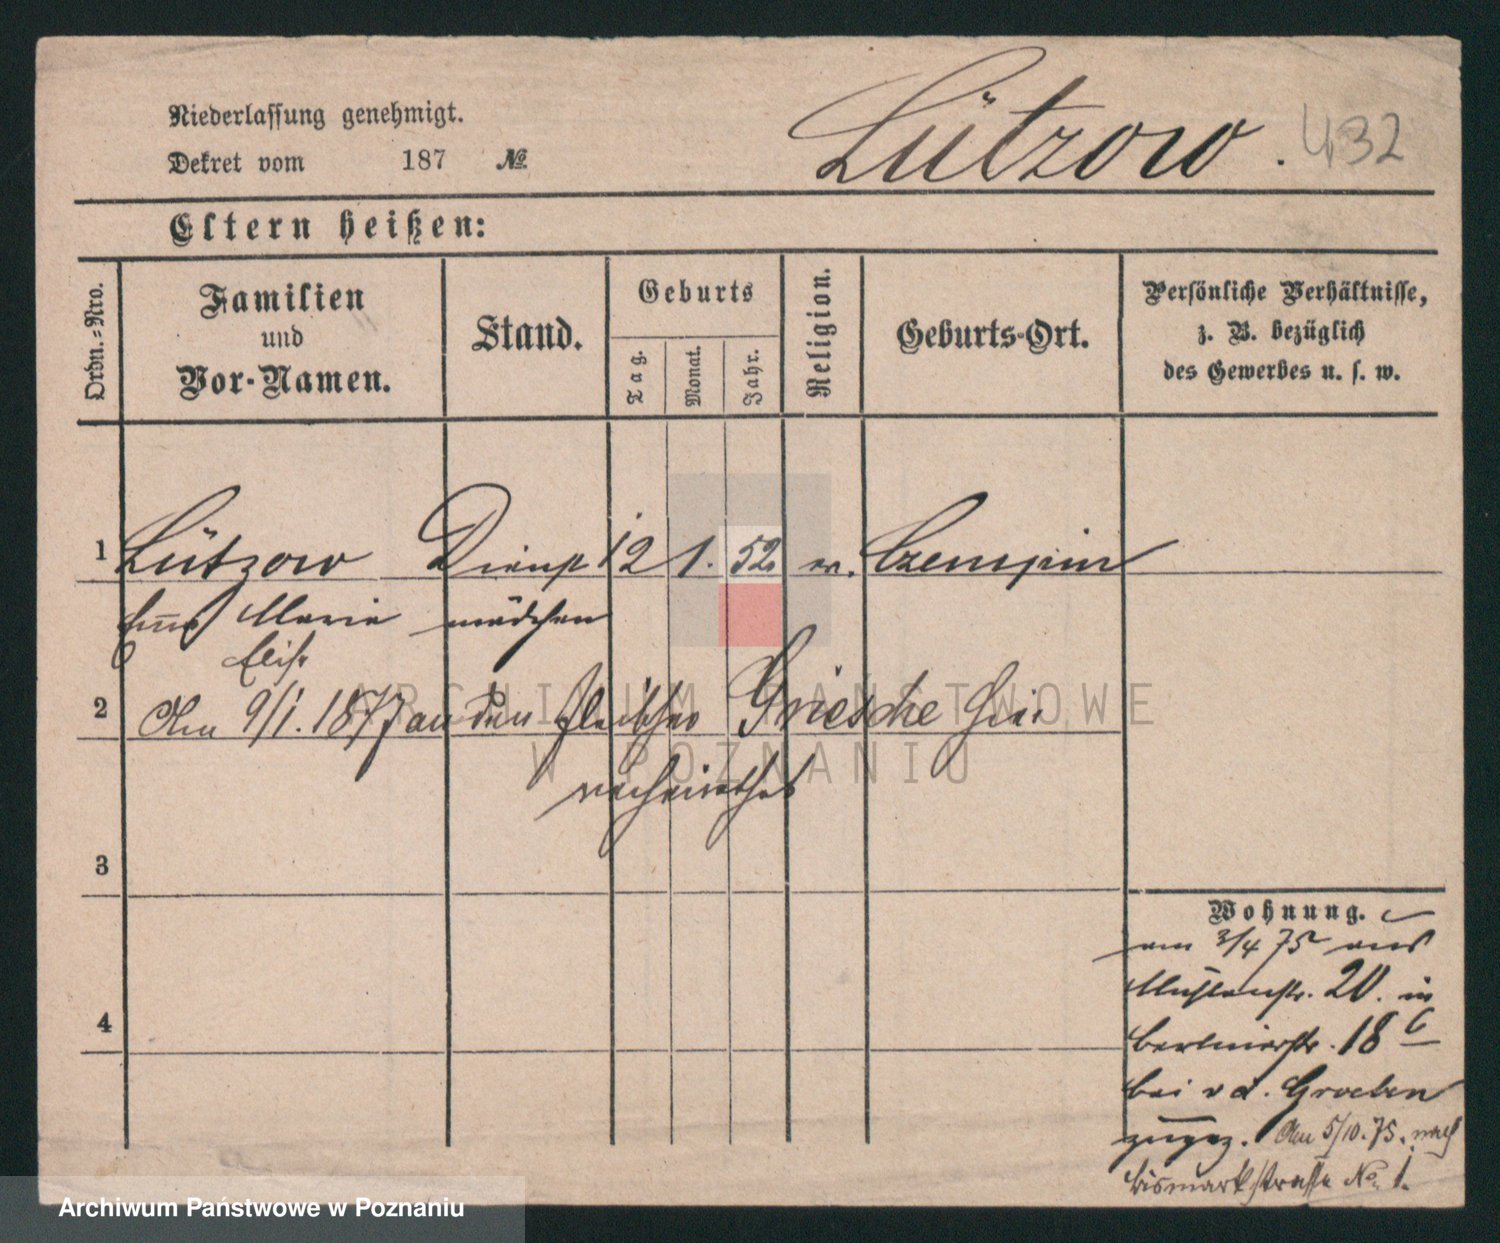 Niederlassung genehmigt.
Dekret vom 187 №
Lützow. 432
Eltern heißen:
Ordn.-Nro.
Familien
und
Vor-Namen.
Stand.
Geburts
Tag.
Monat.
Jahr.
Religion.
Geburts-Ort.
Persönliche Verhältnisse,
z. B. bezüglich
des Gewerbes u. s. w.
1 Lützow Dienst 12 1. 52. ev. Czempin
Marie mädchen
2 Am 9/1. 1877 an den Fleischer Griesche hier
verheirathet
3
4
Wohnung.
am 3/4 75 aus
Mühlenstr. 20. in
Berlinerstr. 18 c
bei v d. Groeben
zugez. Am 5/10. 75. nach
Bismarkstrasse No. 1.
ARCHIWUM PAŃSTWOWE
W POZNANIU
Archiwum Państwowe w Poznaniu